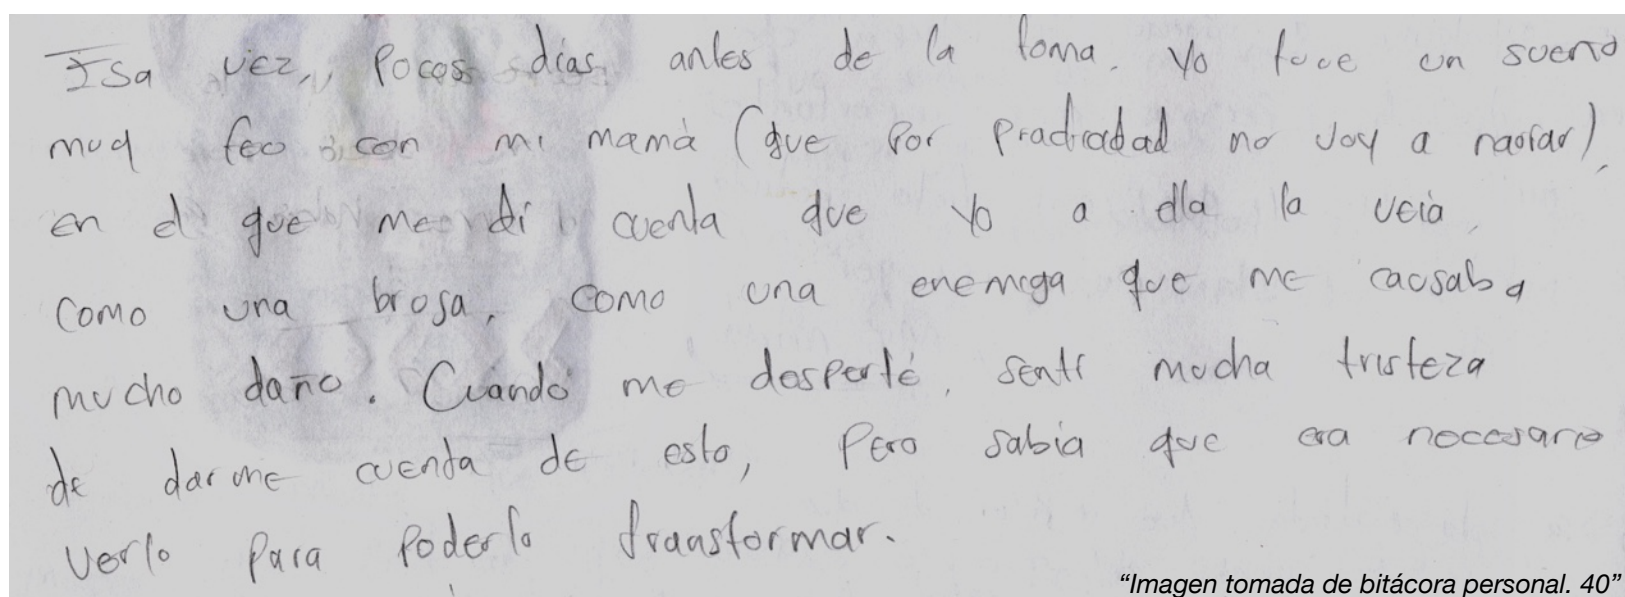 Esa vez, pocos días antes de la toma. Yo tuve un sueño
muy feo con mi mamá (que por practicidad no voy a narrar),
en el que me di cuenta que yo a ella la veía
como una bruja, como una enemiga que me causaba
mucho daño. Cuando me desperté, sentí mucha tristeza
de darme cuenta de esto, pero sabía que era necesario
verlo para poderlo transformar.
"Imagen tomada de bitácora personal. 40"